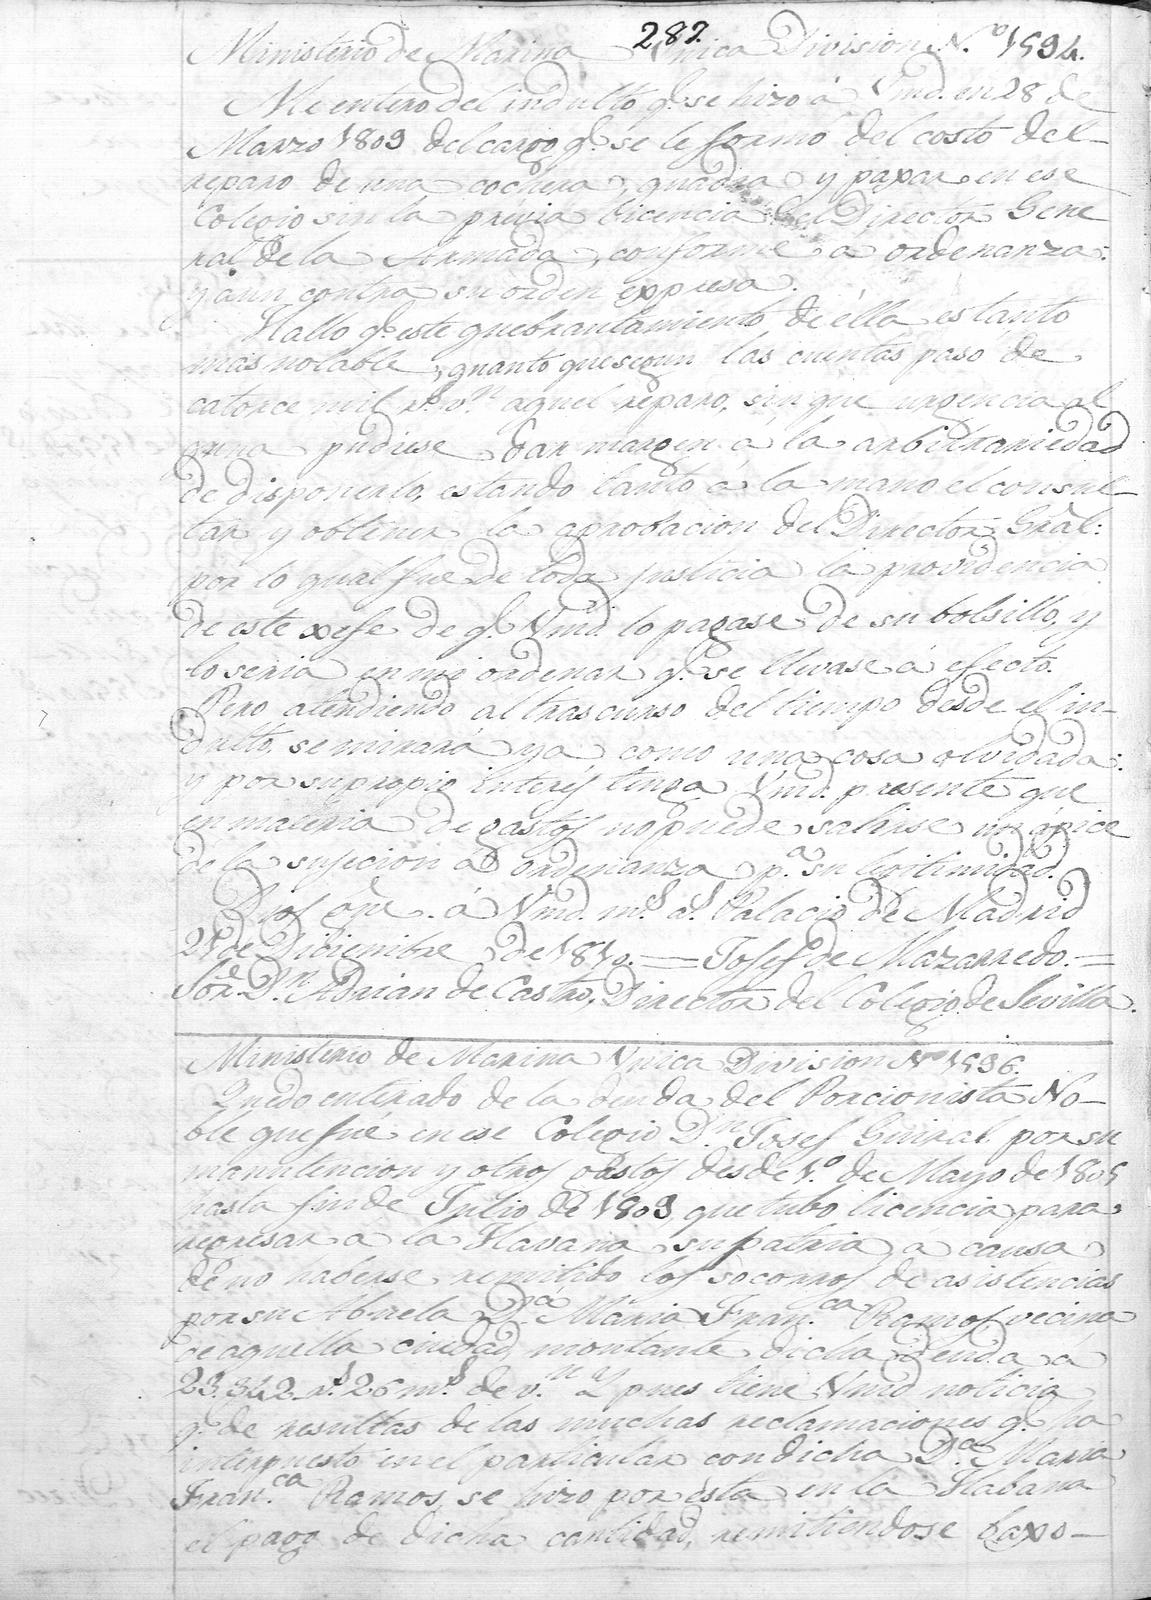 287.
Ministerio de Marina Unica Division N.º 1594.
Me entero del indulto q.e se hizo á Vmd. en 28 de
Marzo 1809 del cargo q.e se le formó del costo del
reparo de una cochera, quadra y pajar en ese
Colegio sin la prévia licencia del Director Gene
ral de la Armada, conforme á ordenanza:
y aun contra su órden expresa.
Hallo q.e este quebrantamiento de élla es tanto
mas notable, quanto que segun las cuentas pasó de
catorce mil r.s v.n aquel reparo, sin que urgencia al
guna pudiese dar margen á la arbitrariedad
de disponerlo, estando tanto á la mano el consul
tar y obtener la aprobacion del Director Gral:
por lo qual fue de toda justicia la providencia
de este xefe de q.e Vmd. lo pagase de su bolsillo, y
lo seria en mi ordenar q.e se llevase á efecto.
Pero atendiendo al trascurso del tiempo desde el in-
dulto, se mirará ya como una cosa olvidada:
y por su propio interes tenga Vmd. presente que
en materia de gastos no puede salirse un ápice
de la sujecion á ordenanza p.a su legitimidad.
Dios gue. á Vmd. m.s a.s Palacio de Madrid
21 de Diciembre de 1810. = Josef de Mazarredo. =
Sor. D.n Adrian de Castro, Director del Colegio de Sevilla.
Ministerio de Marina Unica Division Nº 1596.
Quedo enterado de la deuda del Porcionista No-
ble que fué en ese Colegio D.n Josef Guiral por su
manutencion y otros gastos desde 1.º de Mayo de 1805
hasta fin de Julio de 1809, que tubo licencia para
regresar a la Havana su patria, a causa
de no haberse remitido los socorros de asistencias
por su Abuela D.ª Maria Fran.ca Ramos vecina
de aquella ciudad, montante dicha deuda á
23.342 r.s 26 m.s de v.n Y pues tiene Vmd. noticia
q.e de resultas de las muchas reclamaciones q.e ha
interpuesto en el particular con dicha D.ª Maria
Fran.ca Ramos, se hizo por ésta en la Habana
el pago de dicha cantidad, remitiendose baxo-